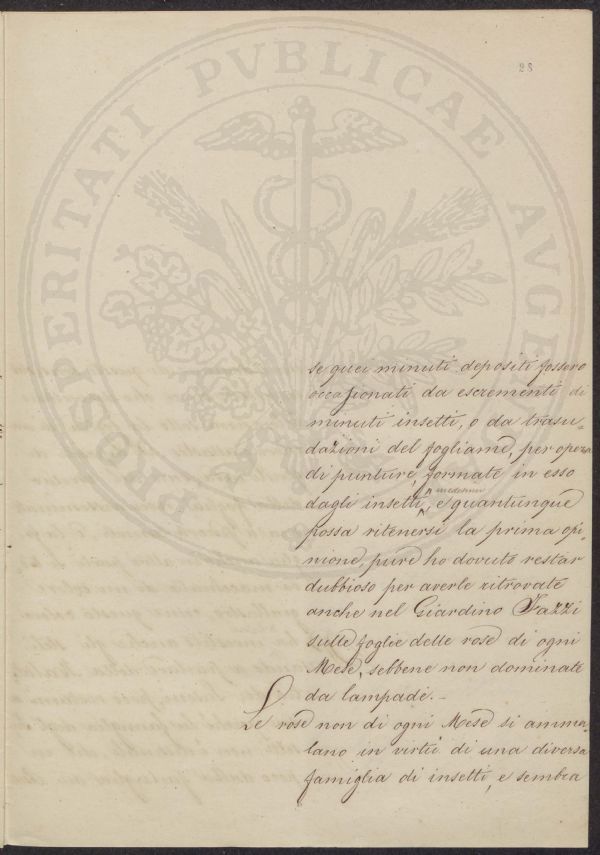 28
PROSPERITATI PVBLICAE AVGE
se quei minuti depositi fossero
occasionati da escrementi di
minuti insetti, o da trasu-
dazioni del fogliame, per opera
di punture, formate in esso
dagli insetti medesimi, e quantunque
possa ritenersi la prima opi-
nione, pure ho dovuto restar
dubbioso per averle ritrovate
anche nel Giardino Fazzi
sulle foglie delle rose di ogni
Mese, sebbene non dominate
da lampade. –
Le rose non di ogni Mese si amma-
lano in virtù di una diversa
famiglia di insetti, e sembra